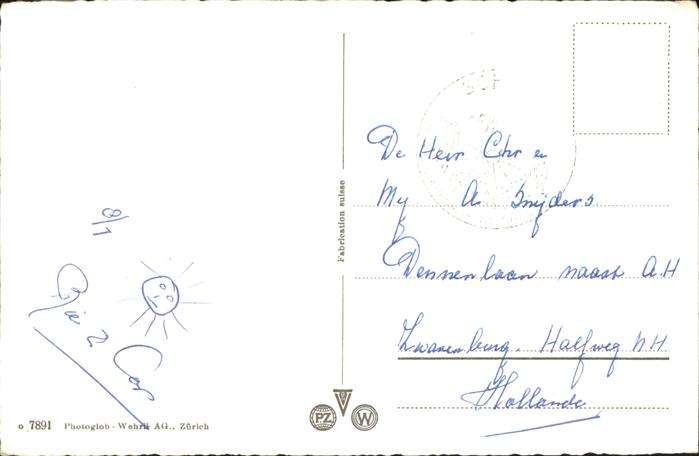 8/1
Cor
De Heer Chr en
A Snijders
Dennenlaan naast A.H
Zwanenburg. Halfweg NH
Hollande
Fabrication suisse
o 7891 Photoglob - Wehrli AG., Zürich
PZ
W